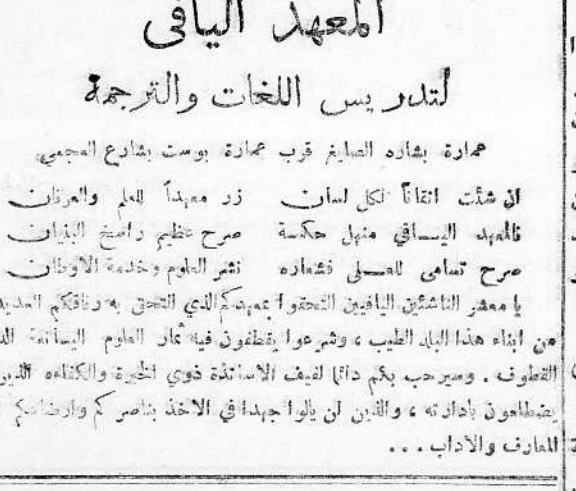 المعهد اليافي
لتدريس اللغات والترجمة
عمارة بشاره الصايغ قرب عمارة بوست بشارع العجمي
ان شئت اتقاناً لكل لسان زر معهداً للعلم والعرفان
فالمعهد اليافي منهل حكمة صرح عظيم راسخ البنيان
صرح تسامى للعلى فشعاره نشر العلوم وخدمة الاوطان
يا معشر الناشئين اليافيين التحقوا بمعهدكم الذي التحق به رفاقكم العديد
من ابناء هذا البلد الطيب ، وشرعوا يقطفون فيه ثمار العلوم اليانعة
القطوف . وسيرحب بكم دائما لفيف الاساتذة ذوي الخبرة والكفاءه الذين
يضطلعون بادارته ، والذين لن يألوا جهدا في الاخذ بناصركم وارضاعكم
المعارف والاداب . . .